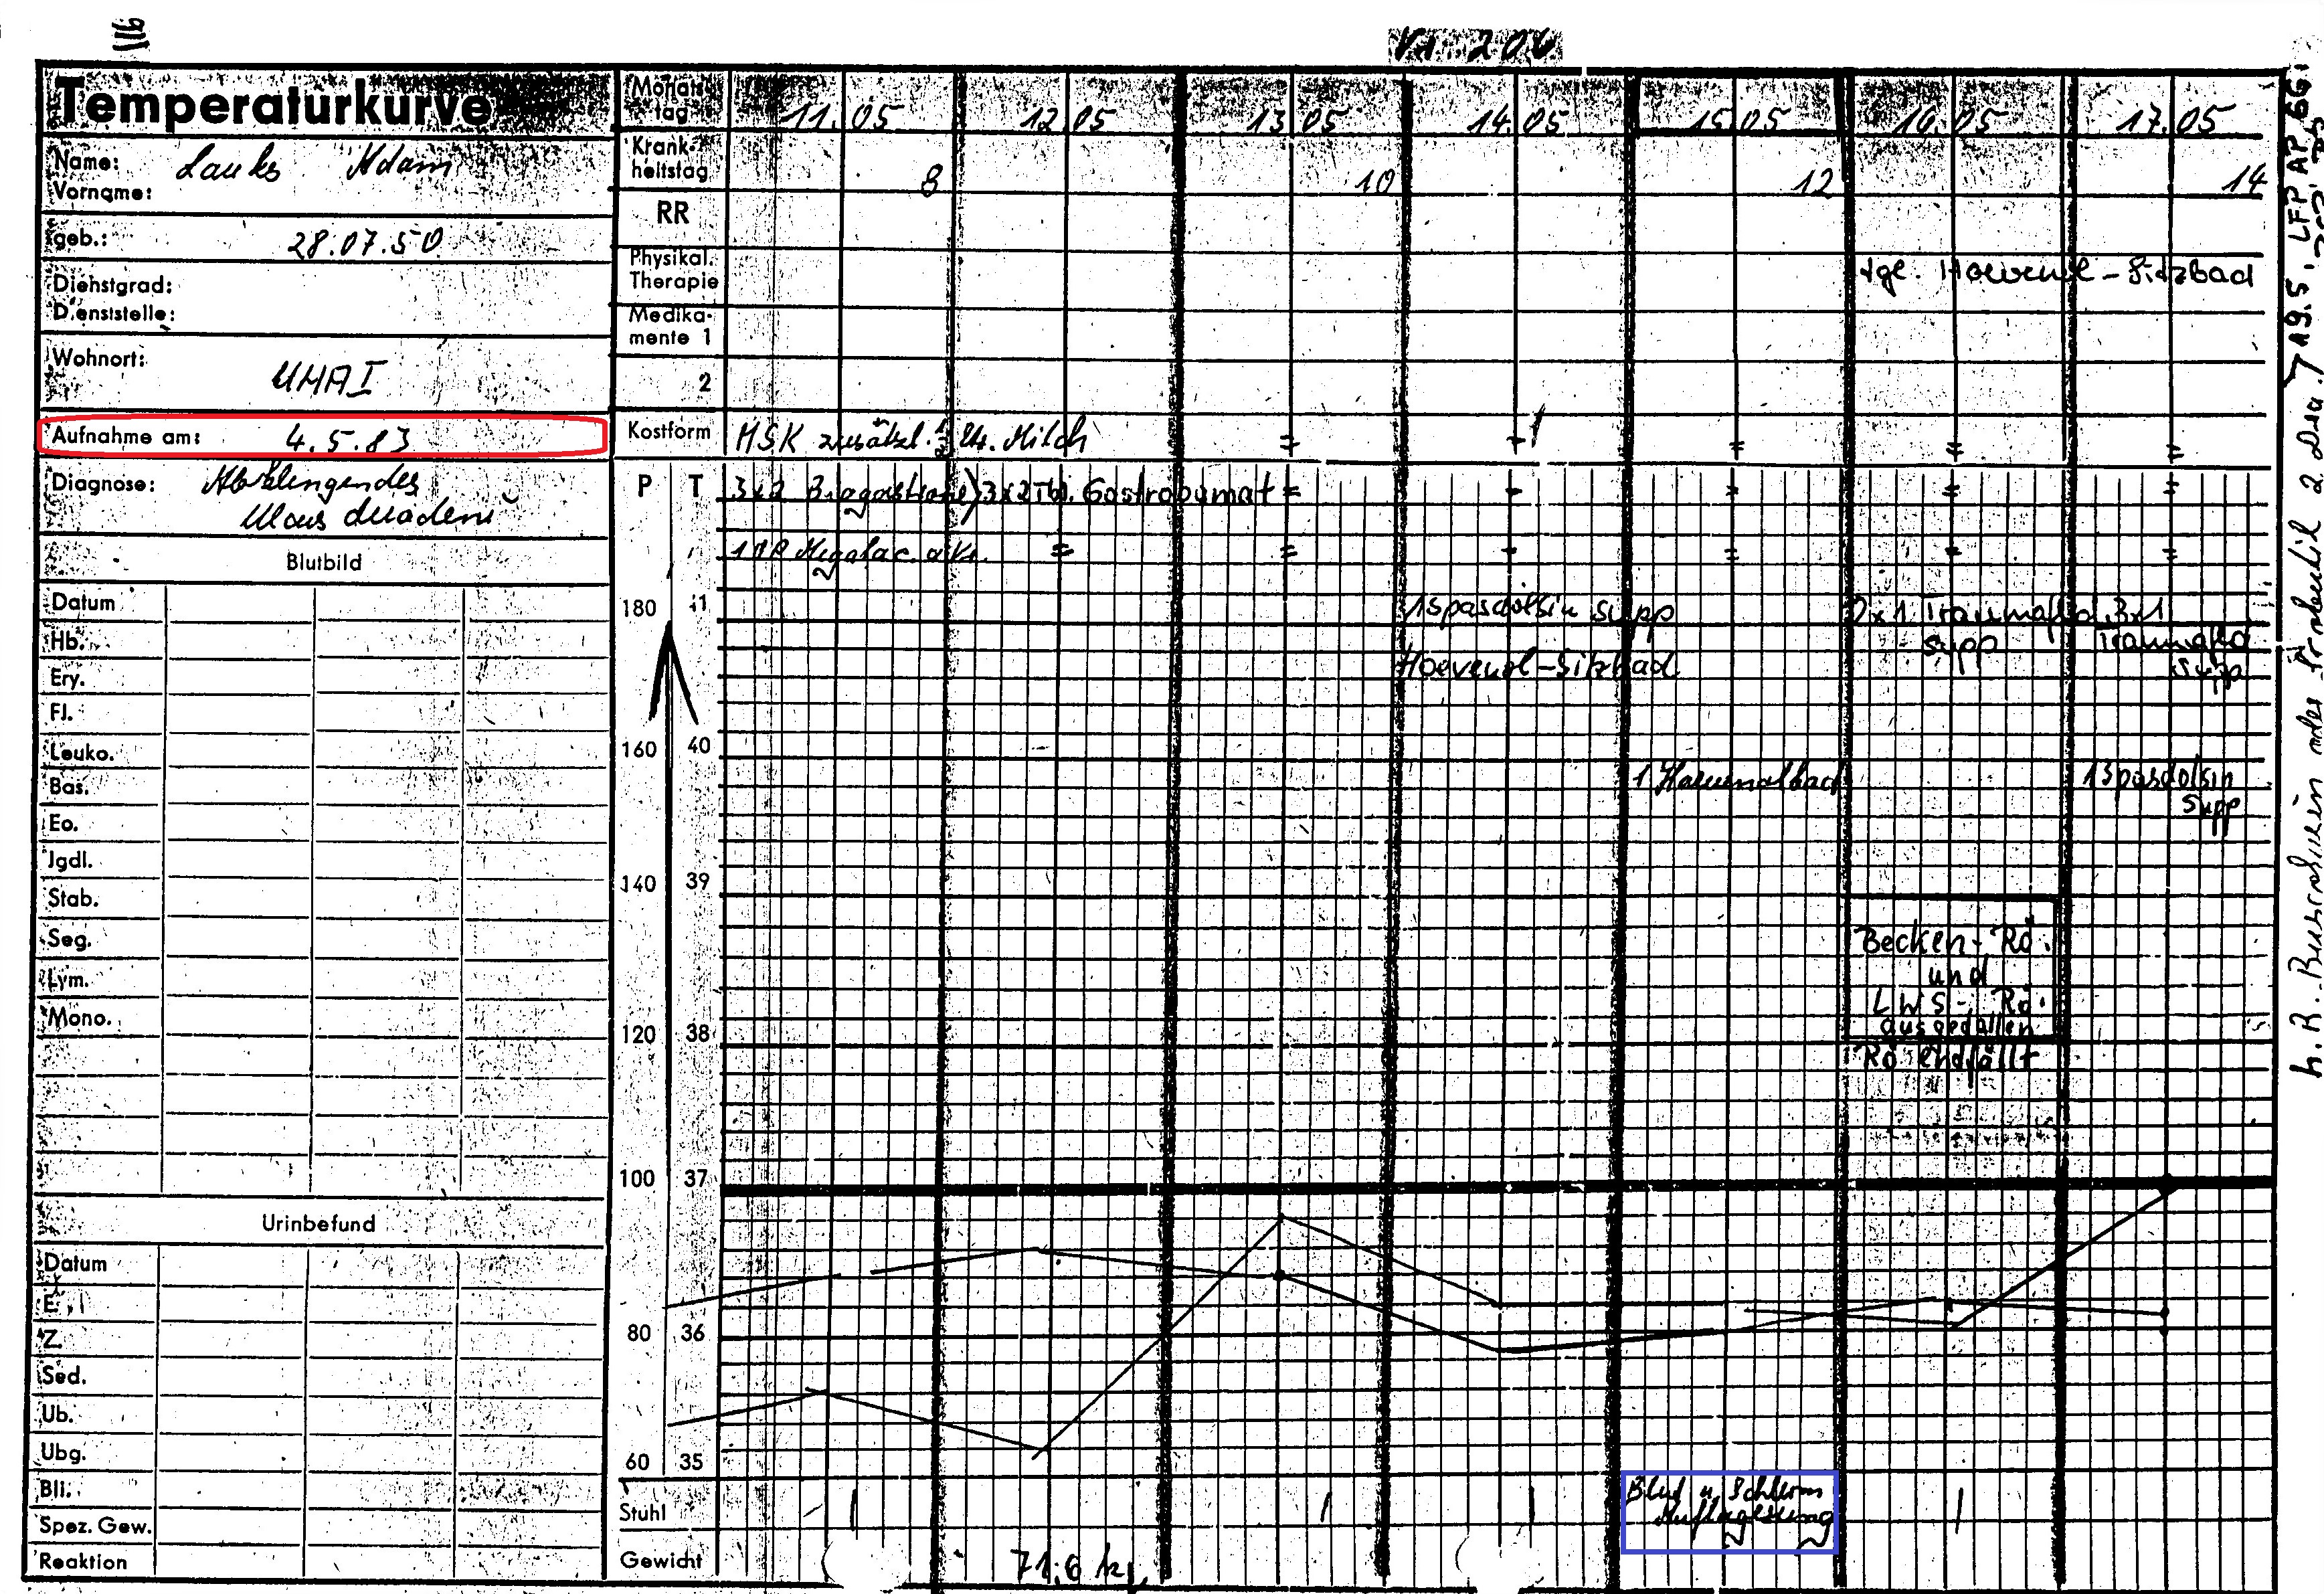 Vr. 206
Temperaturkurve
Name: Lauks Adam
Vorname:
geb.: 28.07.50
Dienstgrad:
Dienststelle:
Wohnort: UHA I
Aufnahme am: 4.5.83
Diagnose: Abklingendes
Ulcus duodeni
Blutbild
Datum
Hb.
Ery.
Fl.
Leuko.
Bas.
Eo.
Jgdl.
Stab.
Seg.
Lym.
Mono.
Urinbefund
Datum
E.
Z.
Sed.
Ub.
Ubg.
Bli.
Spez. Gew.
Reaktion
Monats-
tag 11.05 12.05 13.05 14.05 15.05 16.05 17.05
Krank-
heitstag 8 10 12 14
RR
Physikal.
Therapie tgl. Hoevenol-Sitzbad
Medika-
mente 1
2
Kostform MSK zusätzl. ½ Ltr. Milch = = = =
P T
3x2 3x2 Tbl. Gastrobamat = - = = =
= = - = = =
180 41 1 Spasdolsin Supp 2x1 Traumafld 3x1
Supp Traumafld
Supp
Hoevenol-Sitzbad
160 40
1 Hoevenolbad 1 Spasdolsin
Supp
140 39
Becken-Rö.
und
LWS-Rö.
ausgefallen
120 38
Rö endfällt
100 37
80 36
60 35
Stuhl | | | Blut u. Schleim |
Auflagerung
Gewicht 71,6 kg